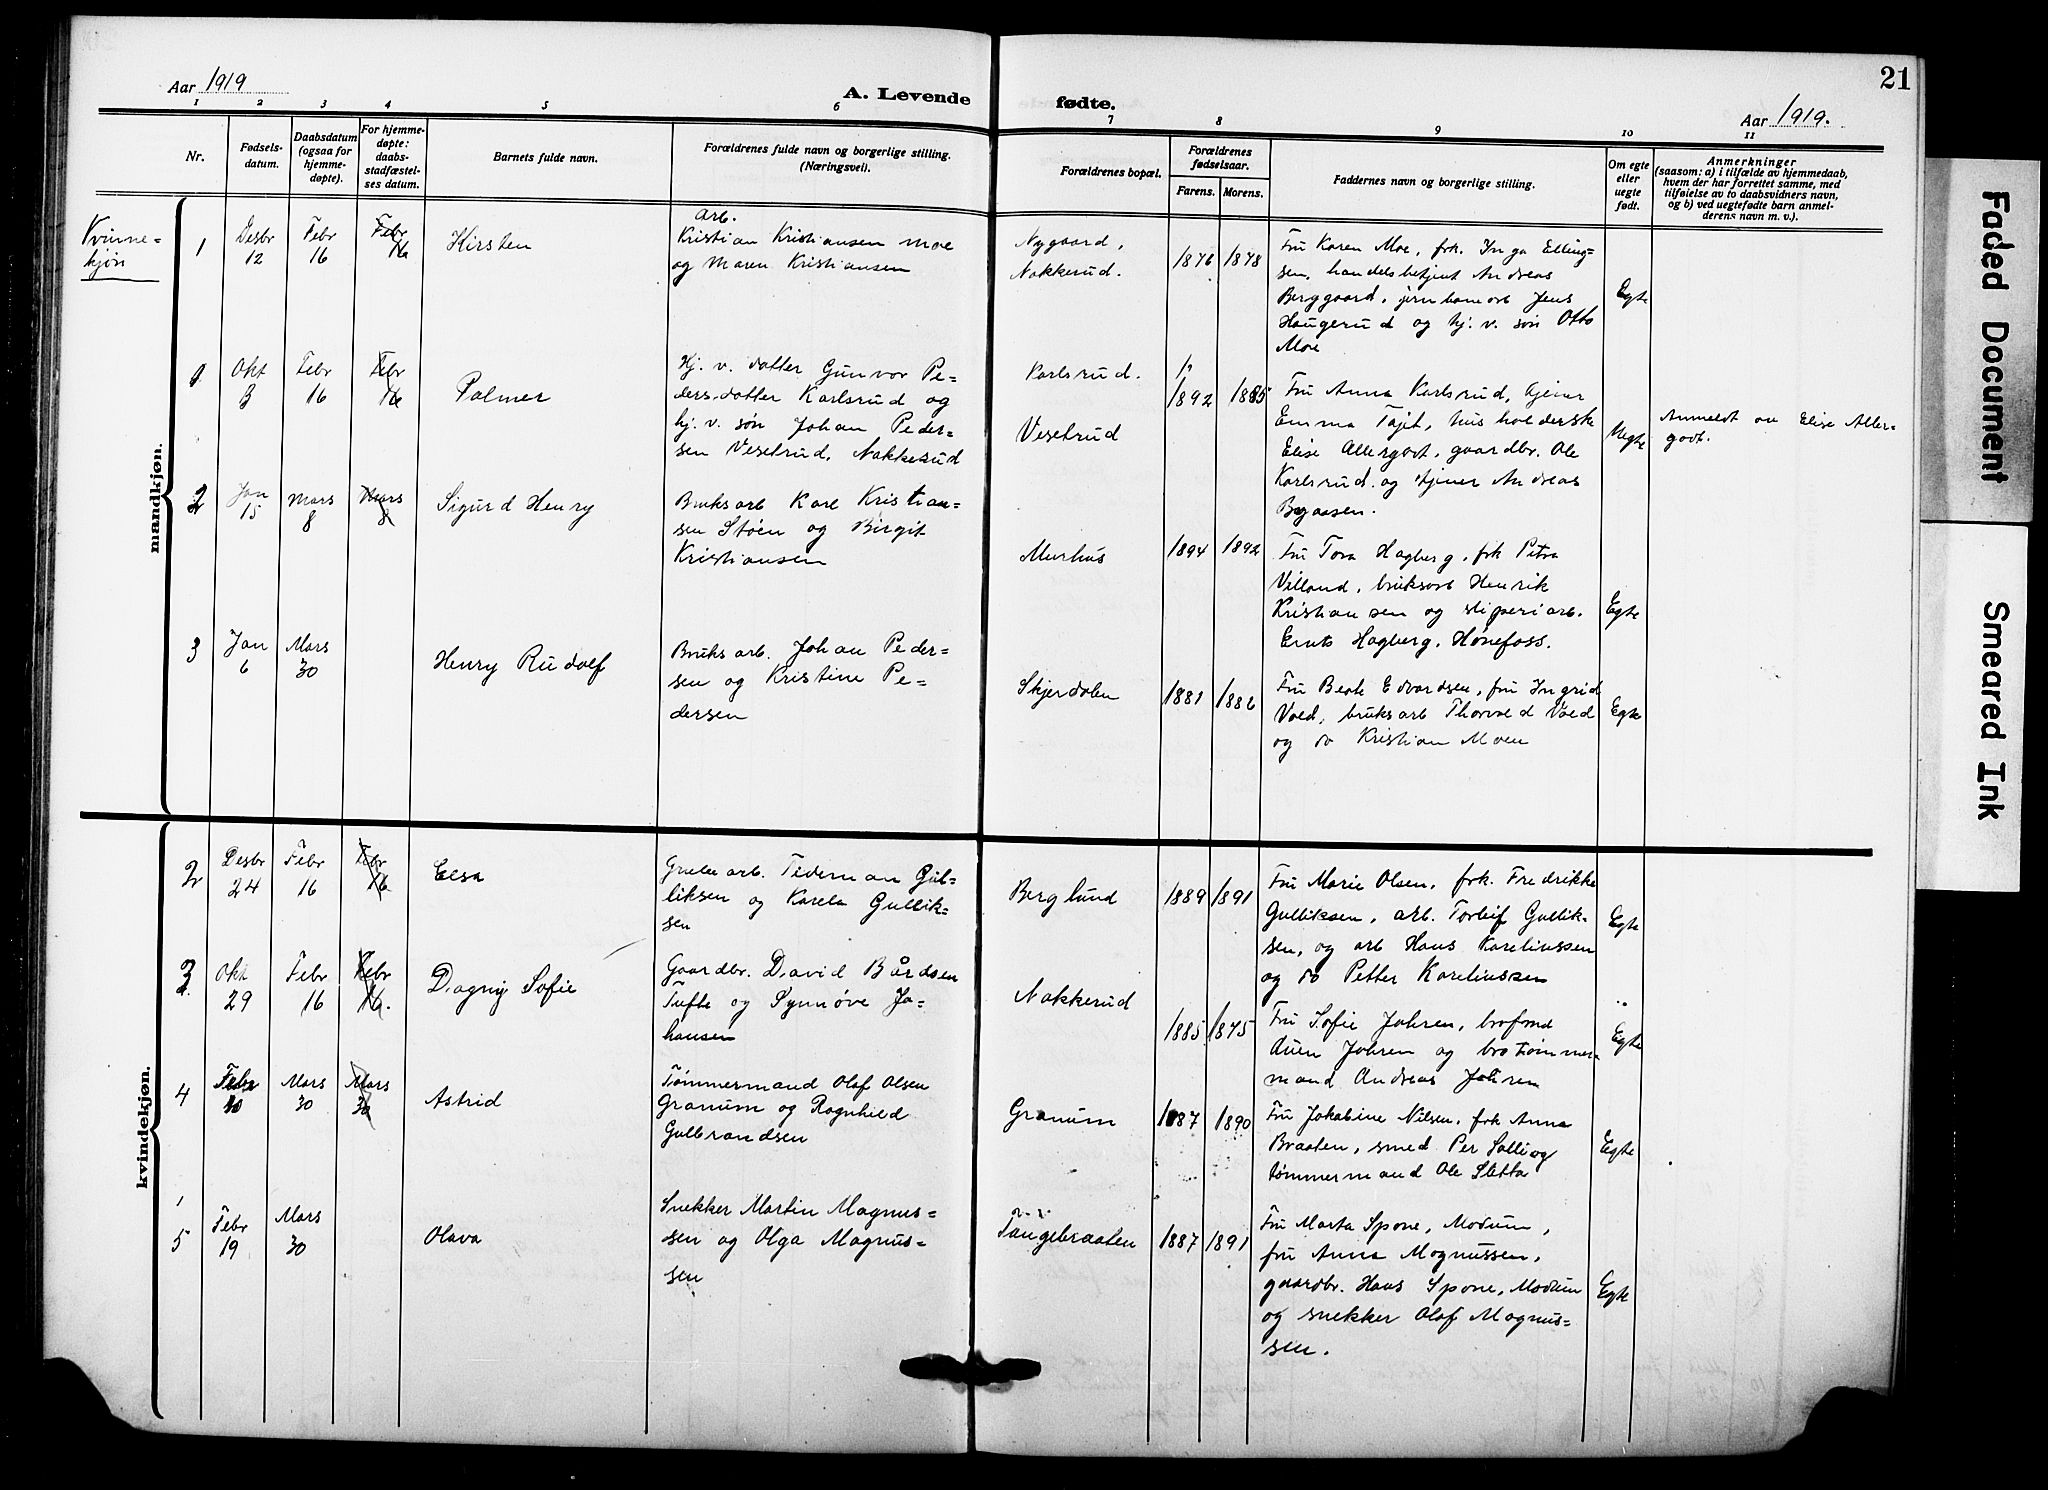 21
Aar 1919
A. Levende fødte.
Aar 1919.
1 2 3 4 5 6 7 8 9 10 11
Nr.
Fødsels-
datum.
Daabsdatum
(ogsaa for
hjemme-
døpte).
For hjemme-
døpte:
daabs-
stadfæstel-
ses datum.
Barnets fulde navn.
Forældrenes fulde navn og borgerlige stilling.
(Næringsvei).
Forældrenes bopæl.
Forældrenes
fødselsaar.
Farens. Morens.
Faddernes navn og borgerlige stilling.
Om egte
eller
uegte
født.
Anmerkninger
(saasom: a) i tilfælde av hjemmedaab,
hvem der har forrettet samme, med
tilføielse av to daabsvidners navn,
og b) ved uegtefødte barn anmel-
derens navn m. v.).
Kvinne-
kjøn
mandkjøn.
1
Desbr
12
Febr
16
Febr
16
Kirsten
Arb.
Kristian Kristiansen Moe
og Maren Kristiansen
Nygaard,
Nakkerud.
1876 1878
Fru Karen Moe, frk. Inga Elling-
sen, handelsbetjent Andreas
Berggaard, jernbanearb Jens
Haugerud og hj. v. søn Otto
Moe
Egte
1
Okt
3
Febr
16
Febr
16
Palmer
Hj. v. datter Gunvor Pe-
dersdatter Karlsrud og
hj. v. søn Johan Peder-
sen Vesetrud, Nakkerud
Karlsrud.
Vesetrud
1892 1885
Fru Anna Karlsrud, tjener
Emma Tajet, husholderske
Elise Allergodt, gaardbr. Ole
Karlsrud og tjener Andreas
Byaasen.
Uegte
Anmeldt av Elise Aller-
godt.
2
Jan
15
Mars
8
Mars
8
Sigurd Henry
Bruksarb Karl Kristian-
sen Støen og Birgit
Kristiansen
Murhus
1894 1892
Fru Tora Hagberg, frk Petra
Villand, bruksarb Henrik
Kristiansen og sliperiarb.
Ernts Hagberg, Hønefoss.
Egte
3
Jan
6
Mars
30
Henry Rudolf
Bruksarb. Johan Peder-
sen og Kristine Pe-
dersen
Skjerdalen
1881 1886
Fru Beate Edvardsen, fru Ingrid
Vold, bruksarb Thorvald Vold
og do Kristian Moen
Egte
kvindekjøn.
2
Desbr
24
Febr
16
Febr
16
Elsa
Grubearb. Tideman Gul-
liksen og Karela Gullik-
sen
Berglund
1889 1891
Fru Marie Olsen, frk. Fredrikke
Gulliksen, arb. Torleif Gullik-
sen, og arb Hans Kareliussen
og do Petter Kareliussen
Egte
3
Okt
29
Febr
16
Febr
16.
Dagny Sofie
Gaardbr. David Bårdsen
Tufte og Synnøve Jo-
hansen
Nakkerud
1885 1875
Fru Sofie Johren,
Johren og brotømmer-
mand Andreas Johren
Egte
4
Febr
Mars
30
Mars
30
Astrid
Tømmermand Olaf Olsen
Granum og Ragnhild
Gulbrandsen
Granum
1887 1890
Fru Jakobine Nilsen, frk Anna
Braaten, smed Per Solli og
tømmermand Ole Sletta
Egte
5
Febr
19
Mars
30
Olava
Snekker Martin Magnus-
sen og Olga Magnus-
sen
Tangebraaten
1887 1891
Fru Marta Spone, Modum,
fru Anna Magnussen,
gaardbr. Hans Spone, Modum
og snekker Olaf Magnus-
sen.
Egte
Faded Document
Smeared Ink